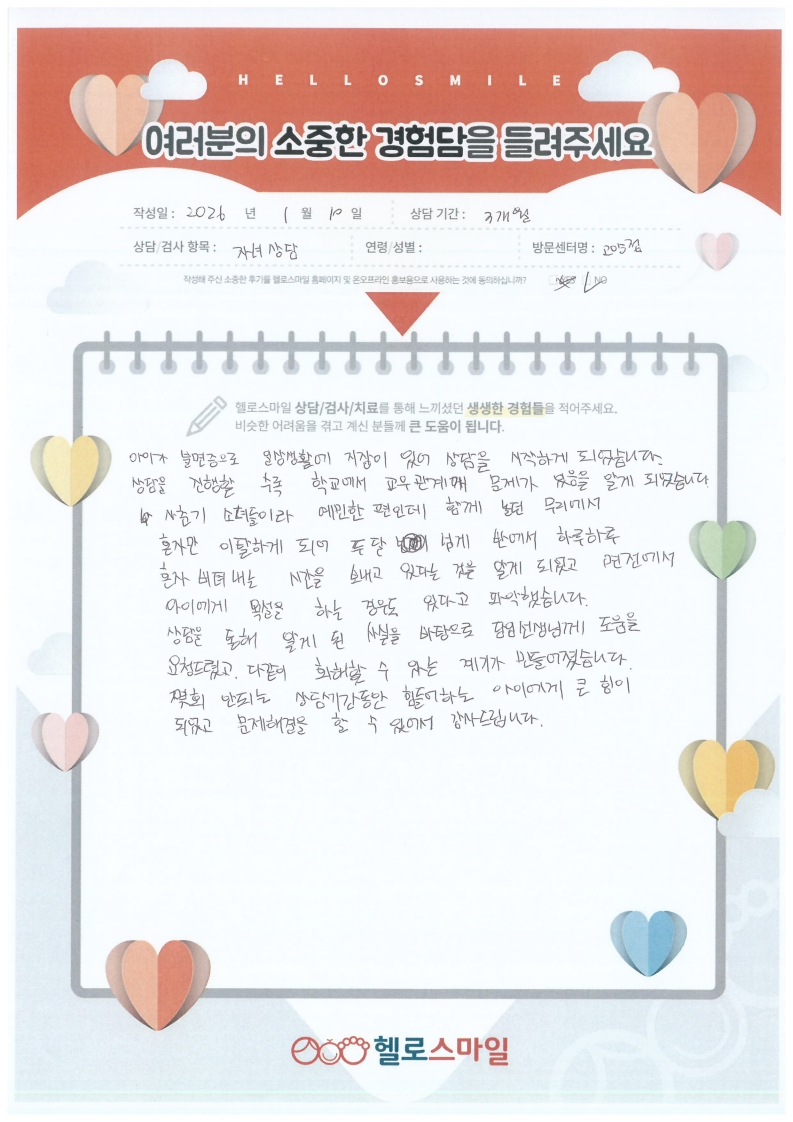 HELLOSMILE
여러분의 소중한 경험담을 들려주세요
작성일 : 2026 년 1 월 10 일 상담 기간 : 3개월
상담/검사 항목 : 자녀 상담 연령/성별 : 방문센터명 : 고양점
작성해 주신 소중한 후기를 헬로스마일 홈페이지 및 온오프라인 홍보용으로 사용하는 것에 동의하십니까? YES NO
헬로스마일 상담/검사/치료를 통해 느끼셨던 생생한 경험들을 적어주세요.
비슷한 어려움을 겪고 계신 분들께 큰 도움이 됩니다.
아이가 불면증으로 일상생활에 지장이 있어 상담을 시작하게 되었습니다.
상담을 진행할 수록 학교에서 교우관계에 문제가 있음을 알게 되었습니다
사춘기 소녀들이라 예민한 편인데 함께 놀던 무리에서
혼자만 이탈하게 되어 두 달 넘게 반에서 하루하루
혼자 버텨내는 시간을 보내고 있다는 것을 알게 되었고 면전에서
아이에게 욕설을 하는 경우도 있다고 파악했습니다.
상담을 통해 알게 된 사실을 바탕으로 담임선생님께 도움을
요청드렸고, 다같이 화해할 수 있는 계기가 만들어졌습니다.
몇회 안되는 상담기간동안 힘들어하는 아이에게 큰 힘이
되었고 문제해결을 할 수 있어서 감사드립니다.
헬로스마일